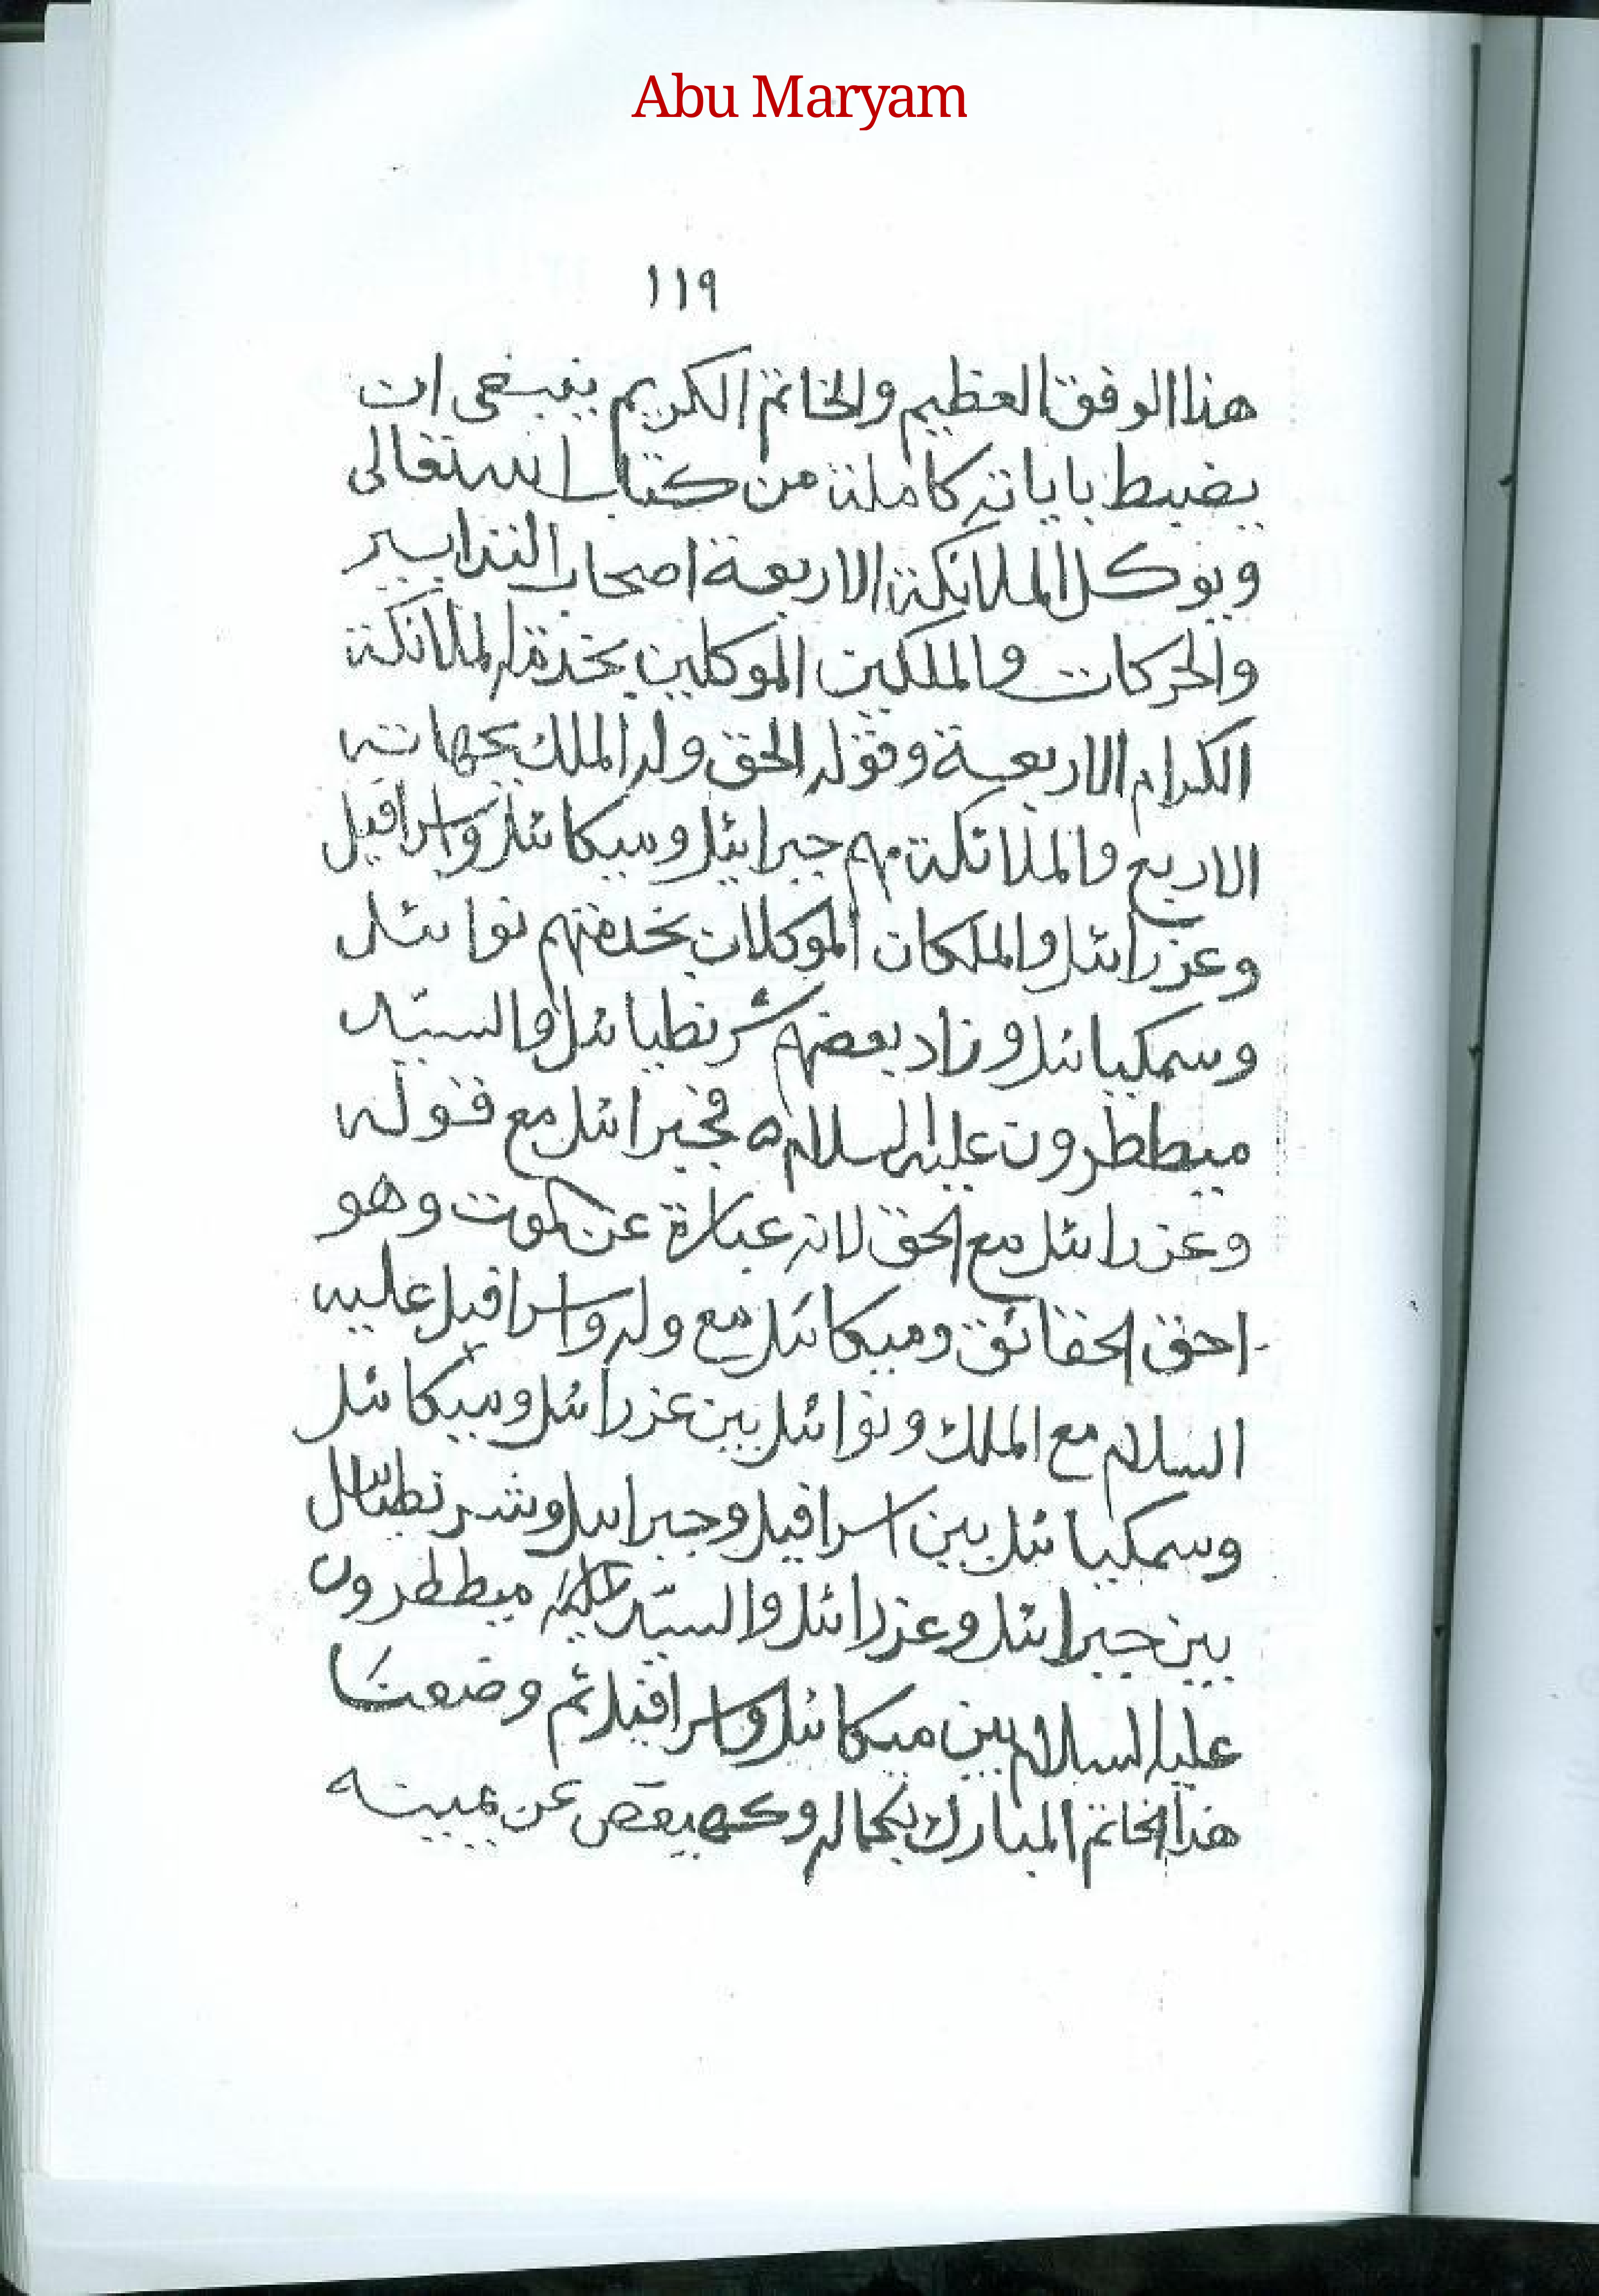 Abu Maryam
١١٩
هذا الوفق العظيم والخاتم الكريم ينبغى ان
يضبط باياته كاملة من كتاب الله تعالى
ويوكل الملائكة الاربعة اصحاب التدابير
والحركات والملكين الموكلين بخدمة الملائكة
الكرام الاربعة وقوله الحق وله الملك بجهاته
الاربع والملائكة هم جبرائيل وميكائيل واسرافيل
وعزرائيل والملكان الموكلان بخدمتهم نوائيل
وسمكيائيل وزاد بعضهم شرنطيائيل والسيد
ميططرون عليه السلام ه فجبرائيل مع قوله
وعزرائيل مع الحق لانه عبارة عن الموت وهو
احق الحقائق وميكائيل مع وله واسرافيل عليه
السلام مع الملك ونوائيل بين عزرائيل وميكائيل
وسمكيائيل بين اسرافيل وجبرائيل وشرنطيائيل
بين جبرائيل وعزرائيل والسيد ميططرون
عليه السلام بين ميكائيل واسرافيل ثم وضعت
هذا الخاتم المبارك بكماله وكهيعص عن يمينه